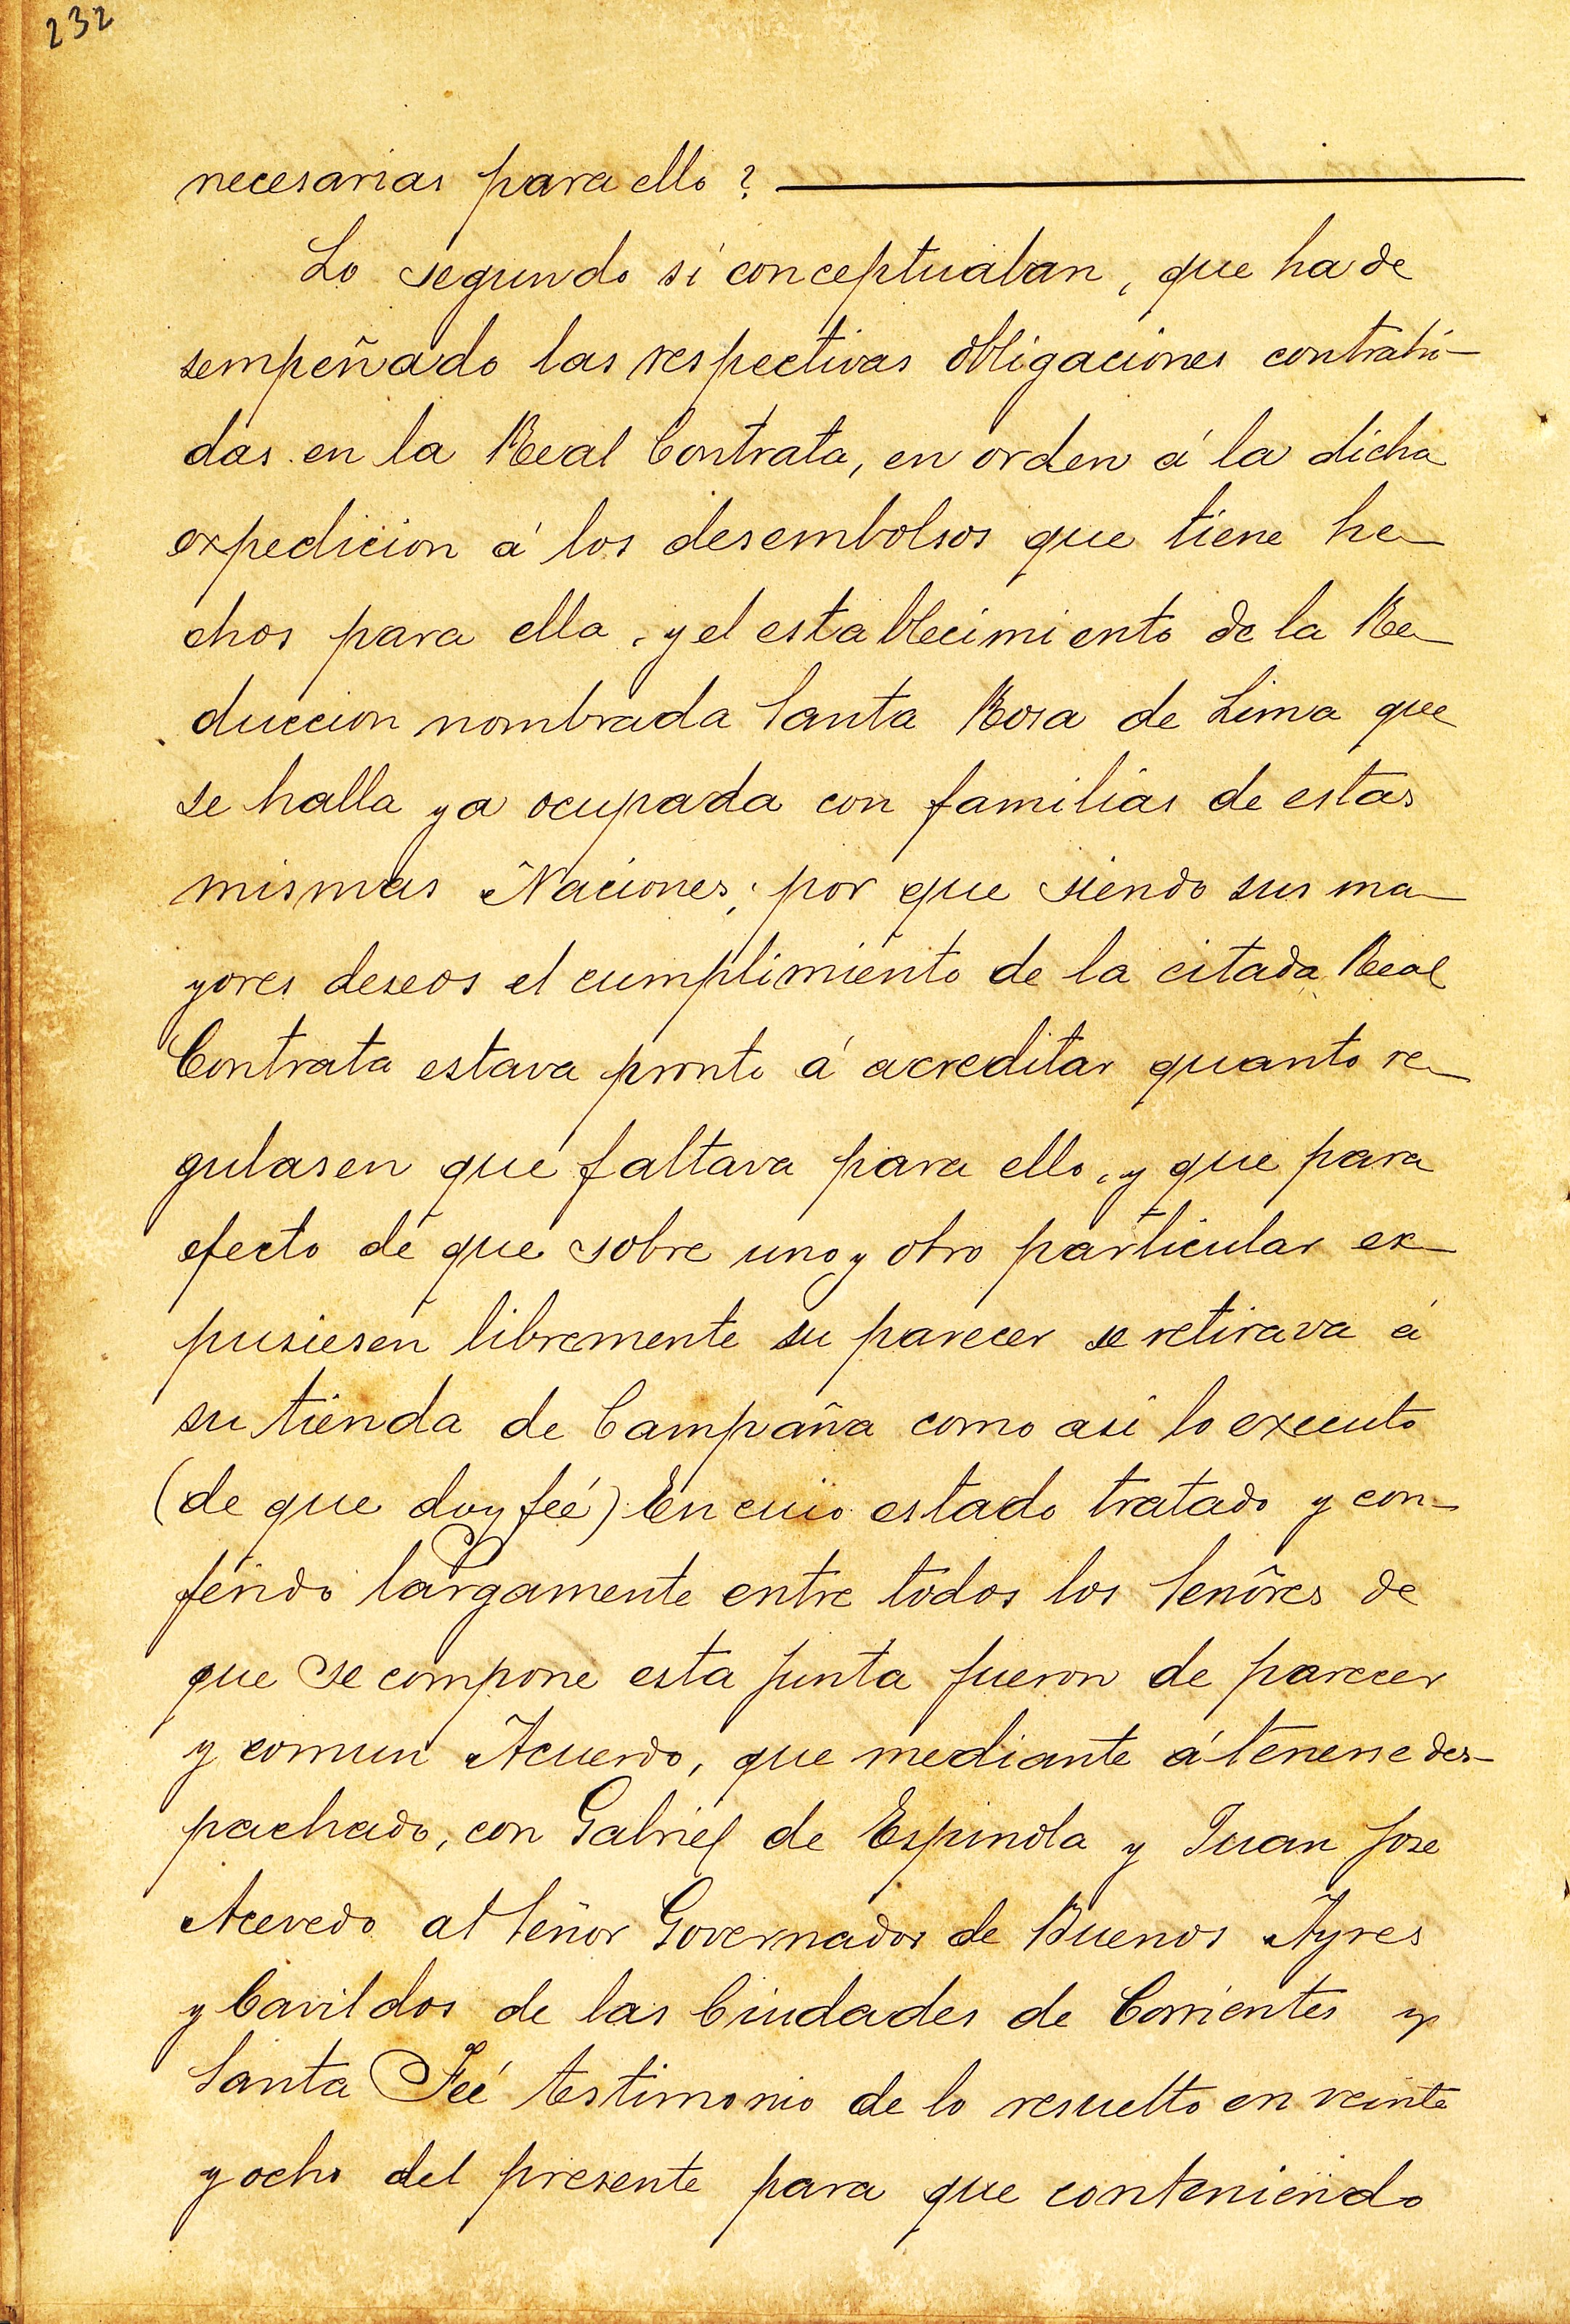 232
necesarias para ello ? ―
Lo segundo si conceptuaban, que ha de
sempeñado las respectivas obligaciones contrahi-
das en la Real Contrata, en orden á la dicha
expedicion á los desembolsos que tiene he-
chos para ella, y el establecimiento de la Re-
duccion nombrada Santa Rosa de Lima que
se halla ya ocupada con familias de estas
mismas Naciones; por que siendo sus ma-
yores deseos el cumplimiento de la citada Real
Contrata estava pronto á acreditar quanto re-
gulasen que faltava para ello, y que para
efecto de que sobre uno y otro particular ex-
pusiesen libremente su parecer se retirava á
su tienda de Campaña como asi lo executo
(de que doy feé) En cuio estado tratado y con-
ferido largamente entre todos los Señores de
que se compone esta Junta fueron de parecer
y comun Acuerdo, que mediante á tenerse des-
pachado, con Gabriel de Espinola y Juan Jose
Acevedo al Señor Governador de Buenos Ayres
y Cavildos de las Ciudades de Corrientes y
Santa Feé testimonio de lo resuelto en veinte
y ocho del presente para que conteniendo